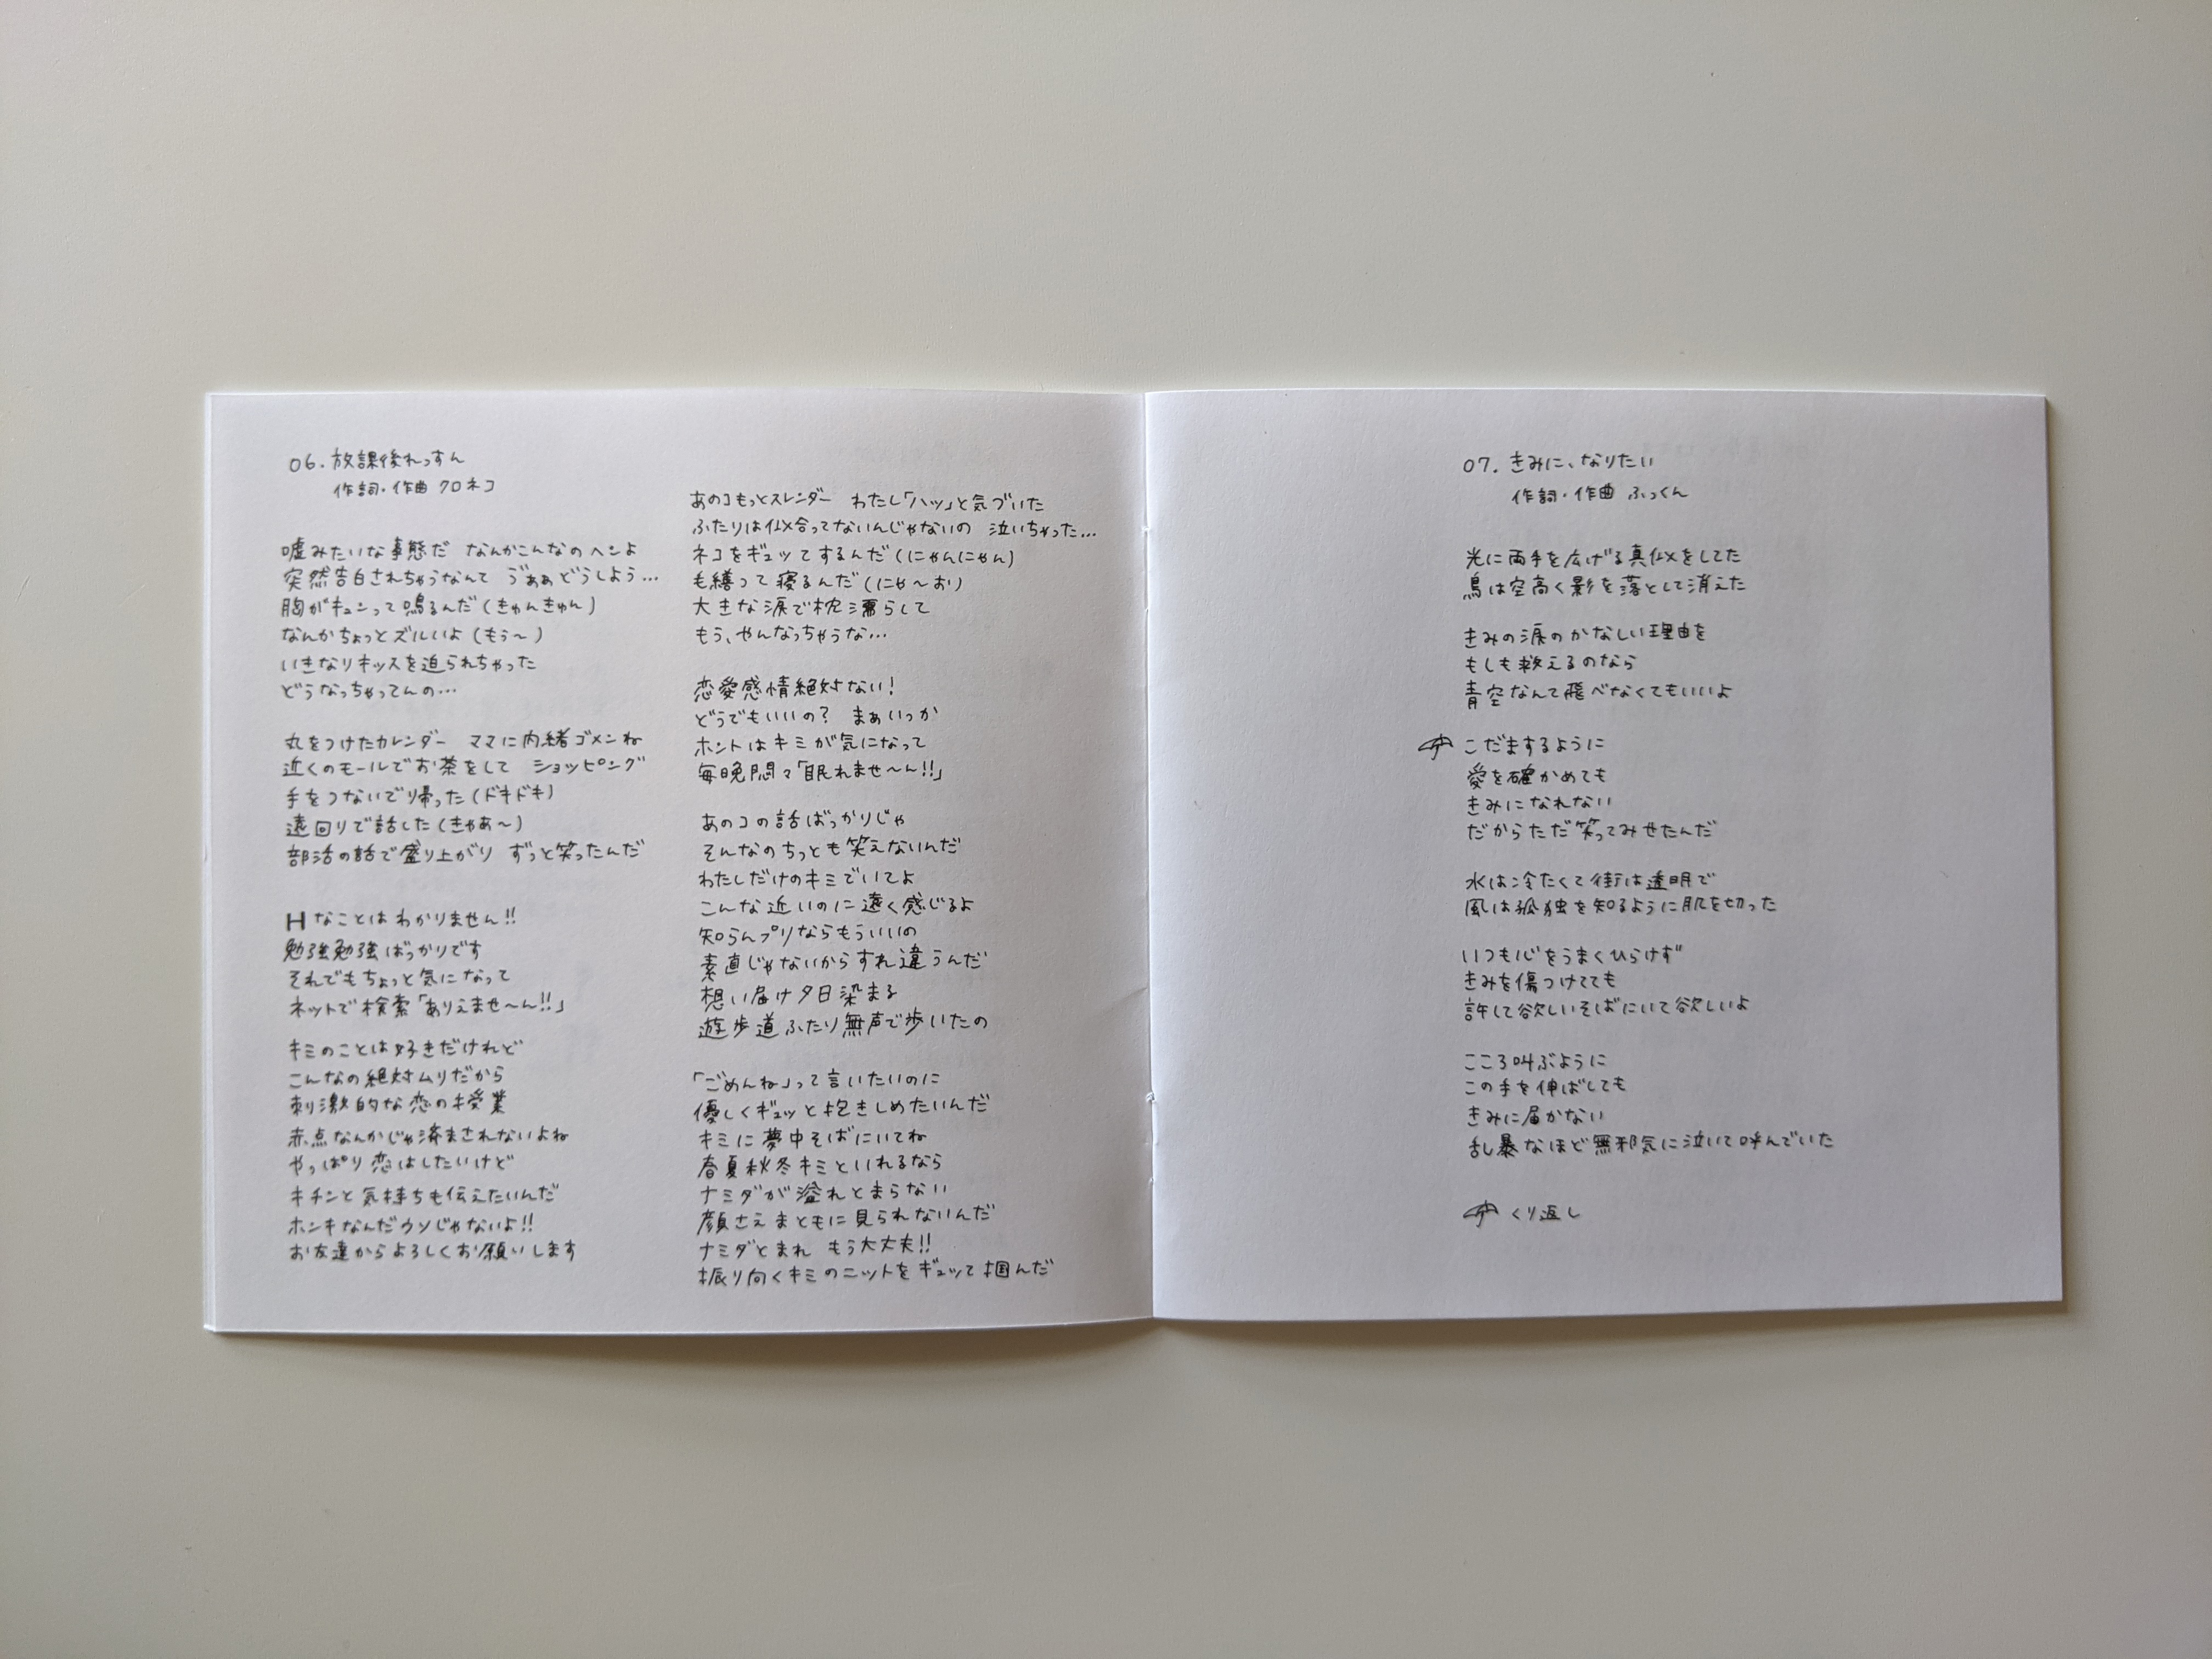 06. 放課後れっすん
作詞・作曲 クロネコ
嘘みたいな事態だ なんかこんなのヘンよ
突然告白されちゃうなんて ゔぁぁどうしよう…
胸がキュンって鳴るんだ(きゅんきゅん)
なんかちょっとズルいよ(もぅ〜)
いきなりキッスを迫られちゃった
どうなっちゃってんの…
丸をつけたカレンダー ママに内緒ゴメンね
近くのモールでお茶をして ショッピング
手をつないで帰った(ドキドキ)
遠回りで話した(きゃあ〜)
部活の話で盛り上がり ずっと笑ったんだ
Hなことはわかりません!!
勉強勉強ばっかりです
それでもちょっと気になって
ネットで検索「ありえませ〜ん!!」
キミのことは好きだけれど
こんなの絶対ムリだから
刺激的な恋の授業
赤点なんかじゃ済まされないよね
やっぱり恋はしたいけど
キチンと気持ちも伝えたいんだ
ホンキなんだウソじゃないよ!!
お友達からよろしくお願いします
あのコもっとスレンダー わたし「ハッ」と気づいた
ふたりは似合ってないんじゃないの 泣いちゃった…
ネコをギュッてするんだ(にゃんにゃん)
毛繕って寝るんだ(にゃ〜お)
大きな涙で枕濡らして
もう、やんなっちゃうな…
恋愛感情絶対ない!
どうでもいいの? まぁいっか
ホントはキミが気になって
毎晩悶々「眠れませ〜ん!!」
あのコの話ばっかりじゃ
そんなのちっとも笑えないんだ
わたしだけのキミでいてよ
こんな近いのに遠く感じるよ
知らんプリならもういいの
素直じゃないからすれ違うんだ
想い届け夕日染まる
遊歩道ふたり無声で歩いたの
「ごめんね」って言いたいのに
優しくギュッと抱きしめたいんだ
キミに夢中そばにいてね
春夏秋冬キミといれるなら
ナミダが溢れとまらない
顔さえまともに見られないんだ
ナミダとまれ もう大丈夫!!
振り向くキミのニットをギュッて掴んだ
07. きみに、なりたい
作詞・作曲 ふっくん
光に両手を広げる真似をしてた
鳥は空高く影を落として消えた
きみの涙のかなしい理由を
もしも救えるのなら
青空なんて飛べなくてもいいよ
こだまするように
愛を確かめても
きみになれない
だからただ笑ってみせたんだ
水は冷たくて街は透明で
風は孤独を知るように肌を切った
いつも心をうまくひらけず
きみを傷つけてても
許して欲しいそばにいて欲しいよ
こころ叫ぶように
この手を伸ばしても
きみに届かない
乱暴なほど無邪気に泣いて呼んでいた
くり返し